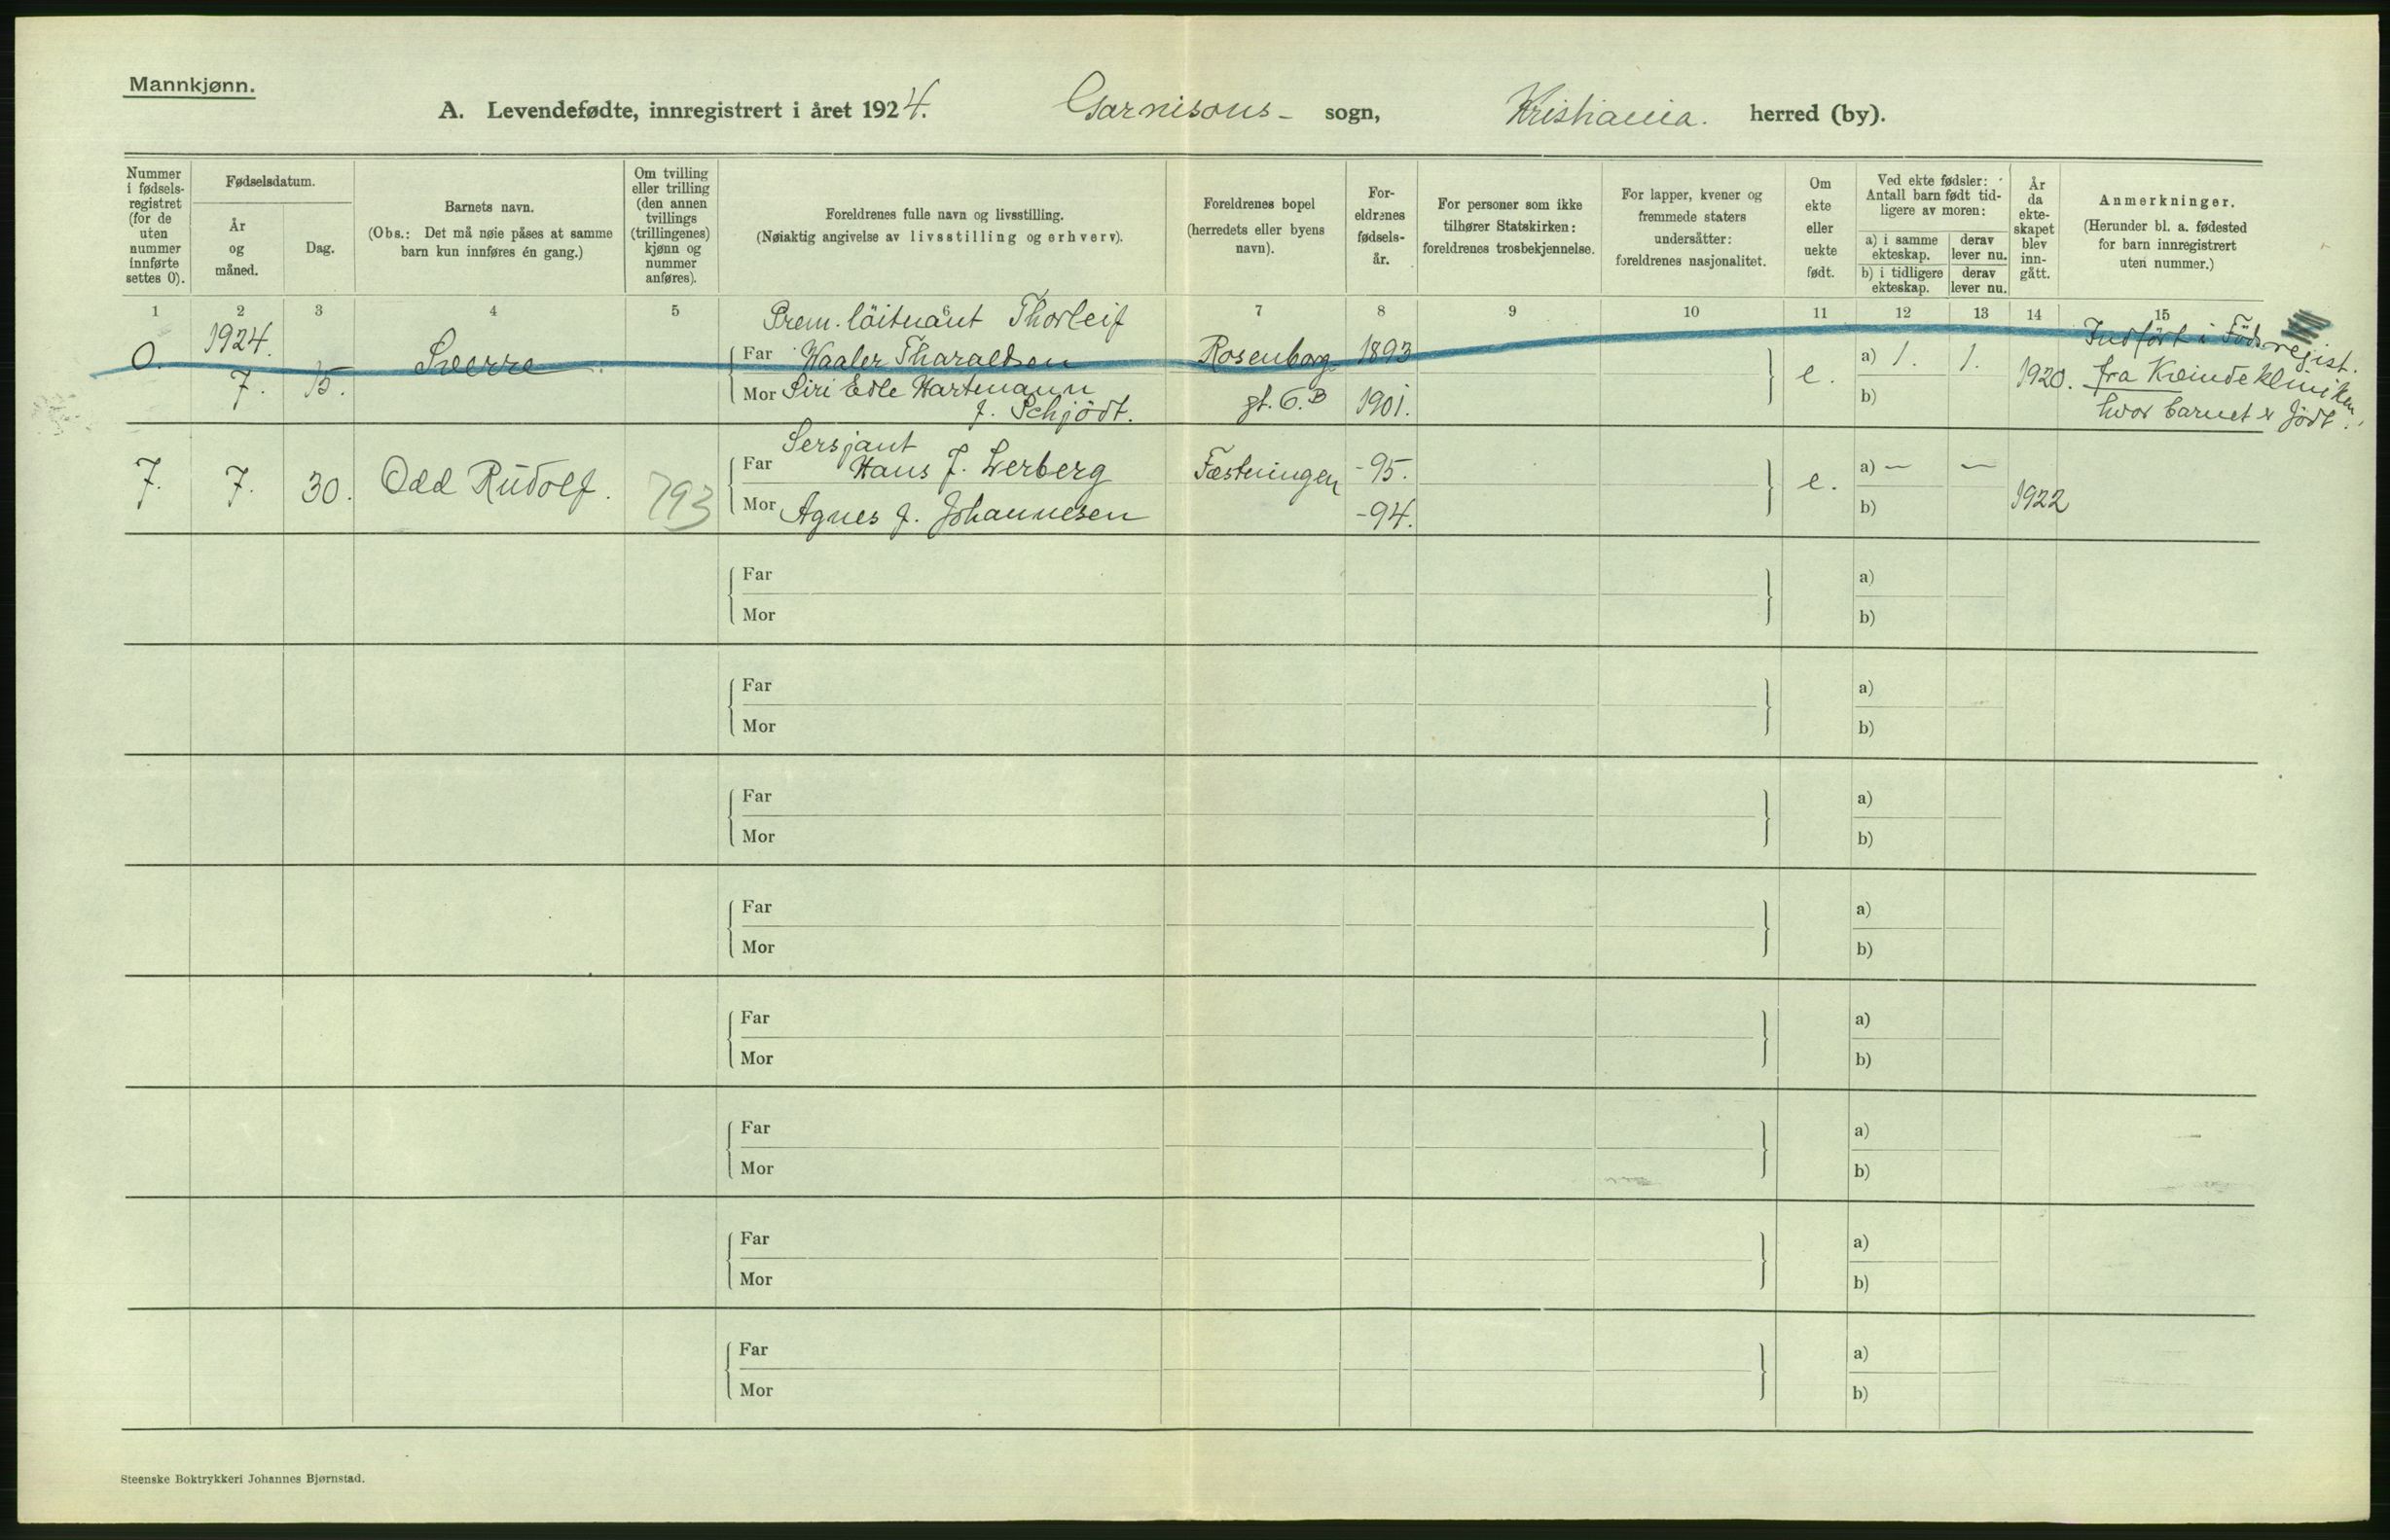 Mannkjønn.
A. Levendefødte, innregistrert i året 1924. Garnisons- sogn, Kristiania. herred (by).
Nummer i fødsels-registret (for de uten nummer innførte settes 0).
Fødselsdatum.
År og måned.
Dag.
Barnets navn.
(Obs.: Det må nøie påses at samme barn kun innføres én gang.)
Om tvilling eller trilling (den annen tvillings (trillingenes) kjønn og nummer anføres).
Foreldrenes fulle navn og livsstilling.
(Nøiaktig angivelse av livsstilling og erhverv).
Foreldrenes bopel (herredets eller byens navn).
For-eldrenes fødsels-år.
For personer som ikke tilhører Statskirken: foreldrenes trosbekjennelse.
For lapper, kvener og fremmede staters undersåtter: foreldrenes nasjonalitet.
Om ekte eller uekte født.
Ved ekte fødsler: Antall barn født tid-ligere av moren:
a) i samme ekteskap.
derav lever nu.
b) i tidligere ekteskap.
derav lever nu.
År da ekte-skapet blev inn-gått.
Anmerkninger.
(Herunder bl. a. fødested for barn innregistrert uten nummer.)
1 2 3 4 5 6 7 8 9 10 11 12 13 14 15
0. 1924. 7. 15. Sverre
Prem. löitnant Thorleif
Far Waaler Tharaldsen Rosenborg 1893
Mor Siri Edle Hartmann
f. Schjödt. gt. 6.B 1901.
e. a) 1. 1.
b)
1920.
Indført i Föds-regist.
fra Kvindeklinikken
hvor barnet er födt.
7. 7. 30. Odd Rudolf. 793
Sersjant
Far Hans J. Lerberg Fæstningen -95.
Mor Agnes f. Johannesen -94.
e. a) — —
b)
1922
Far a)
Mor b)
Far a)
Mor b)
Far a)
Mor b)
Far a)
Mor b)
Far a)
Mor b)
Far a)
Mor b)
Far a)
Mor b)
Far a)
Mor b)
Steenske Boktrykkeri Johannes Bjørnstad.